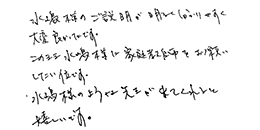 水嶋様のご説明が明るく分かりやすく
大変良かったです。
このまま水嶋様に家庭教師をお願い
したい位です。
水嶋様のような先生が来てくれると
嬉しいです。